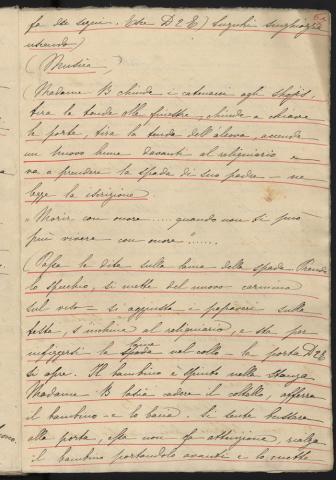 fa dei segni. Esce D2E) Suzuki singhiozza
uscendo)
(Musica)
Madame B chiude i catenacci agli Shosi.
tira le tende alle finestre - chiude a chiave
la porta, tira la tenda dell'alcova, accende
un nuovo lume davanti al reliquiario e
va a prendere la spada di suo padre - ne
legge la iscrizione
"Morir con onore ..... quando non si può
più vivere con onore" ......
(Passa le dita sulla lama della spada Prende
lo specchio, si mette del nuovo carmino
sul viso = si aggiusta i papaveri sulla
testa, s'inchina al reliquiario, e sta per
infiggersi la lama nel collo la porta D2E
si apre. Il bambino è spinto nella stanza
Madame B lascia cadere il coltello, afferra
il bambino - e lo bacia. Si sente bussare
alla porta, essa non fa attenzione, rialza
il bambino portandolo avanti e lo mette